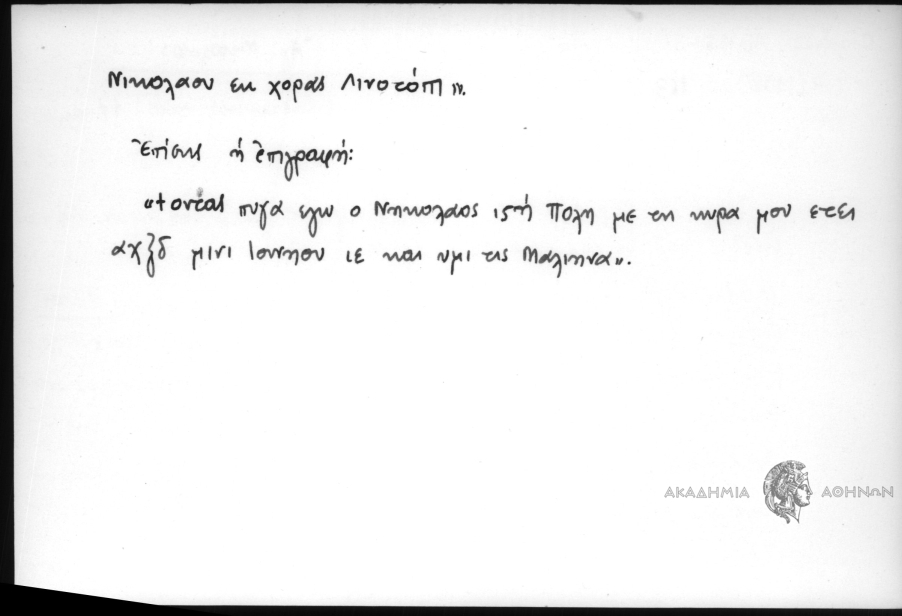 Νικολαου εκ χορας Λινοτόπι».
Επίσης ή επιγραφή:
πυγα εγω ο Νηκολαος ιςτή Πολη με τη κυρα μου ετει
αχξδ μινι Ιουνηου ιε και υμι τις
ΑΚΑΔΗΜΙΑ ΑΘΗΝΩΝ